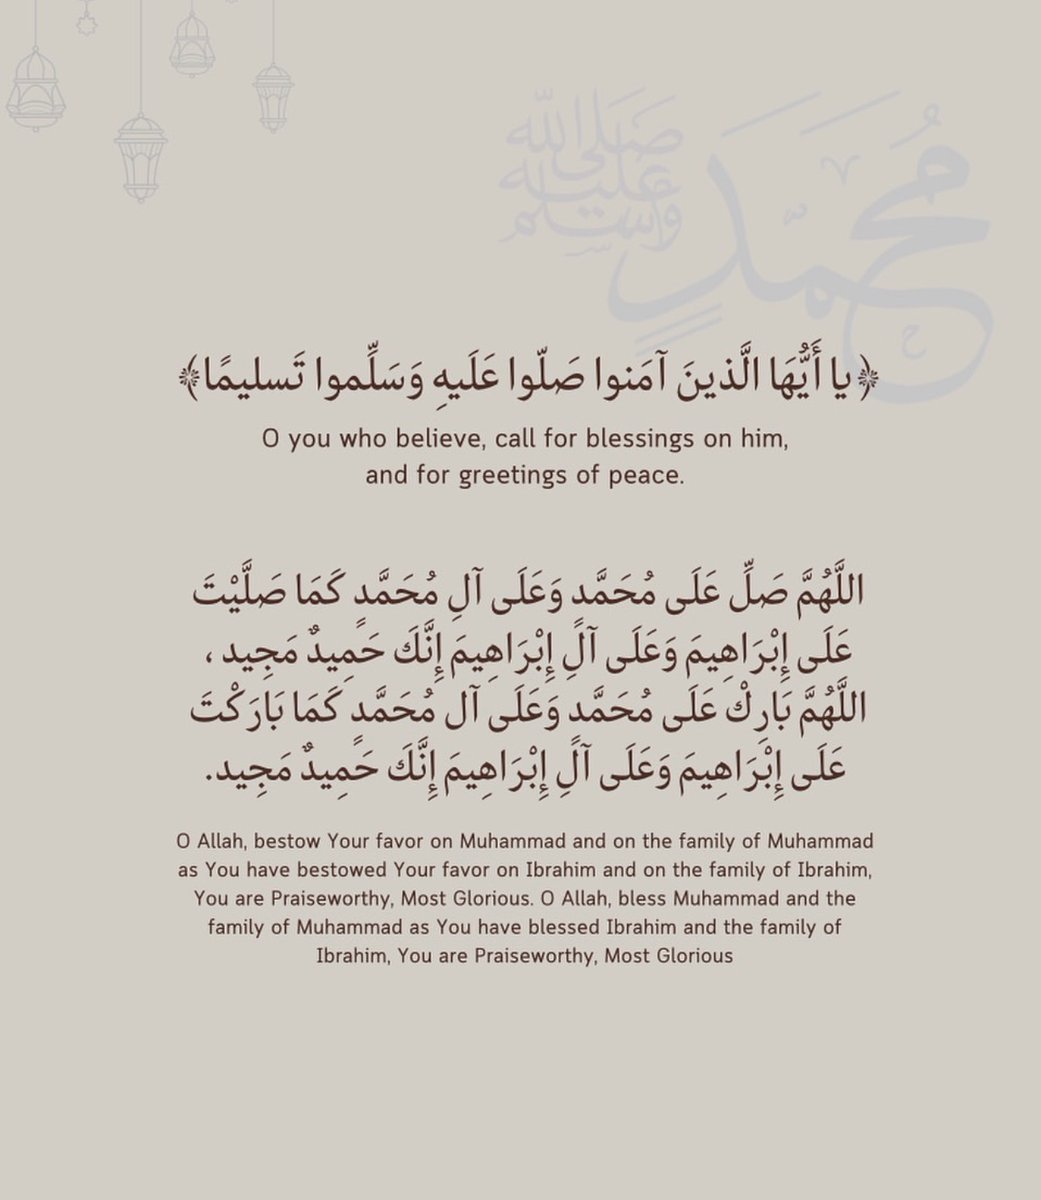 محمد صلى الله عليه وسلم
﴿يا أَيُّهَا الَّذينَ آمَنوا صَلّوا عَلَيهِ وَسَلِّموا تَسليمًا﴾
O you who believe, call for blessings on him,
and for greetings of peace.
اللَّهُمَّ صَلِّ عَلَى مُحَمَّدٍ وَعَلَى آلِ مُحَمَّدٍ كَمَا صَلَّيْتَ
عَلَى إِبْرَاهِيمَ وَعَلَى آلِ إِبْرَاهِيمَ إِنَّكَ حَمِيدٌ مَجِيد ،
اللَّهُمَّ بَارِكْ عَلَى مُحَمَّدٍ وَعَلَى آل مُحَمَّدٍ كَمَا بَارَكْتَ
عَلَى إِبْرَاهِيمَ وَعَلَى آلِ إِبْرَاهِيمَ إِنَّكَ حَمِيدٌ مَجِيد.
O Allah, bestow Your favor on Muhammad and on the family of Muhammad
as You have bestowed Your favor on Ibrahim and on the family of Ibrahim,
You are Praiseworthy, Most Glorious. O Allah, bless Muhammad and the
family of Muhammad as You have blessed Ibrahim and the family of
Ibrahim, You are Praiseworthy, Most Glorious